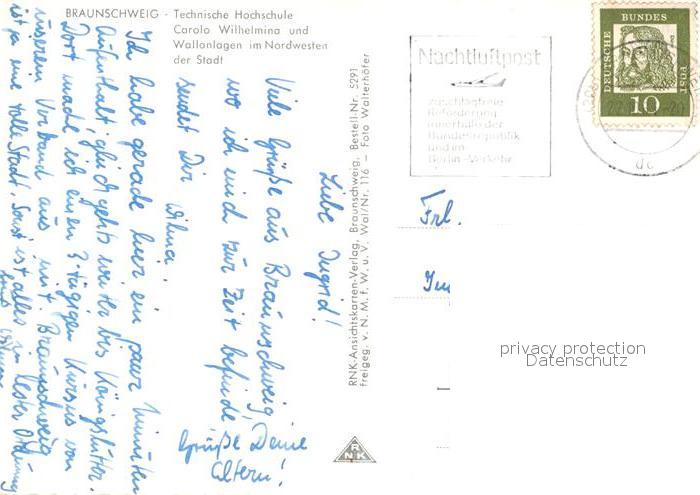 BRAUNSCHWEIG - Technische Hochschule
Carola Wilhelmina und
Wallanlagen im Nordwesten
der Stadt
Liebe Ingrid!
Viele Grüße aus Braunschweig,
wo ich mich zur Zeit befinde,
sendet Dir
Wilma.
Ich habe gerade hier ein paar Minuten
Aufenthalt, gleich gehts weiter bis Königslutter.
Dort mache ich einen 3-tägigen Kursus von
unserem Verband aus mit. Braunschweig
ist ja eine tolle Stadt. Sonst ist alles in bester Ordnung
Grüße Deine
Eltern!
RNK-Ansichtskarten-Verlag, Braunschweig, Bestell-Nr. 5291
Freigeg. v. N. M. f. W. u. V. Wal/Nr. 116 – Foto Walterhöfer
RNK
Nachtluftpost
zuschlagfreie
Beförderung
innerhalb der
Bundesrepublik
und im
Berlin-Verkehr
DEUTSCHE
BUNDES
POST
10
dc
Frl.
privacy protection
Datenschutz